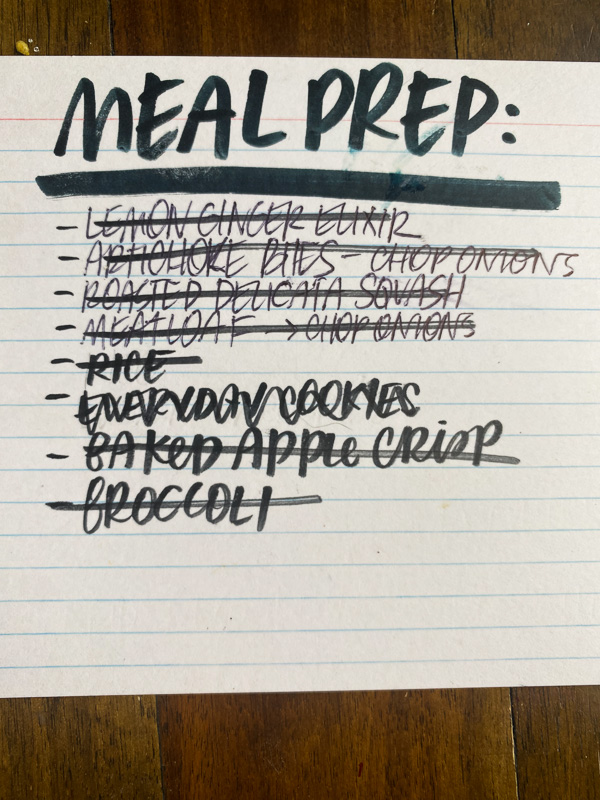 MEAL PREP:
- LEMON GINGER ELIXIR
- ARTICHOKE BITES - CHOP ONIONS
- ROASTED DELICATA SQUASH
- MEATLOAF -> CHOP ONIONS
- RICE
- EVERYDAY COOKIES
- BAKED APPLE CRISP
- BROCCOLI